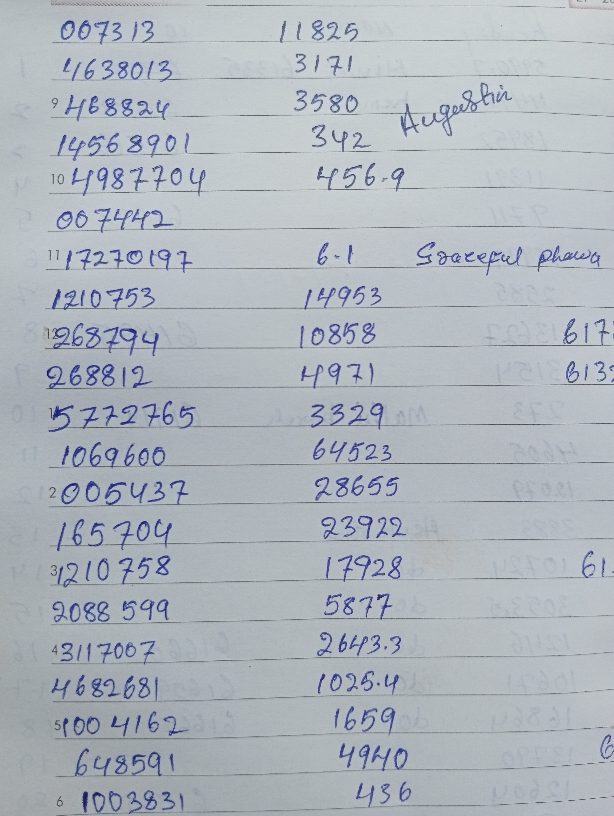 007313 11825
4638013 3171
9 468824 3580 Augustin
14568901 342
10 4987704 456.9
007442
11 17270197 6.1
1210753 14953
12 268794 10858 617
268812 4971 613
1 5772765 3329
1069600 64523
2 005437 28655
165704 23922
3 1210758 17928 61
2088599 5877
4 3117007 2643.3
4682681 1025.4
5 1004162 1659
648591 4940 6
6 1003831 436